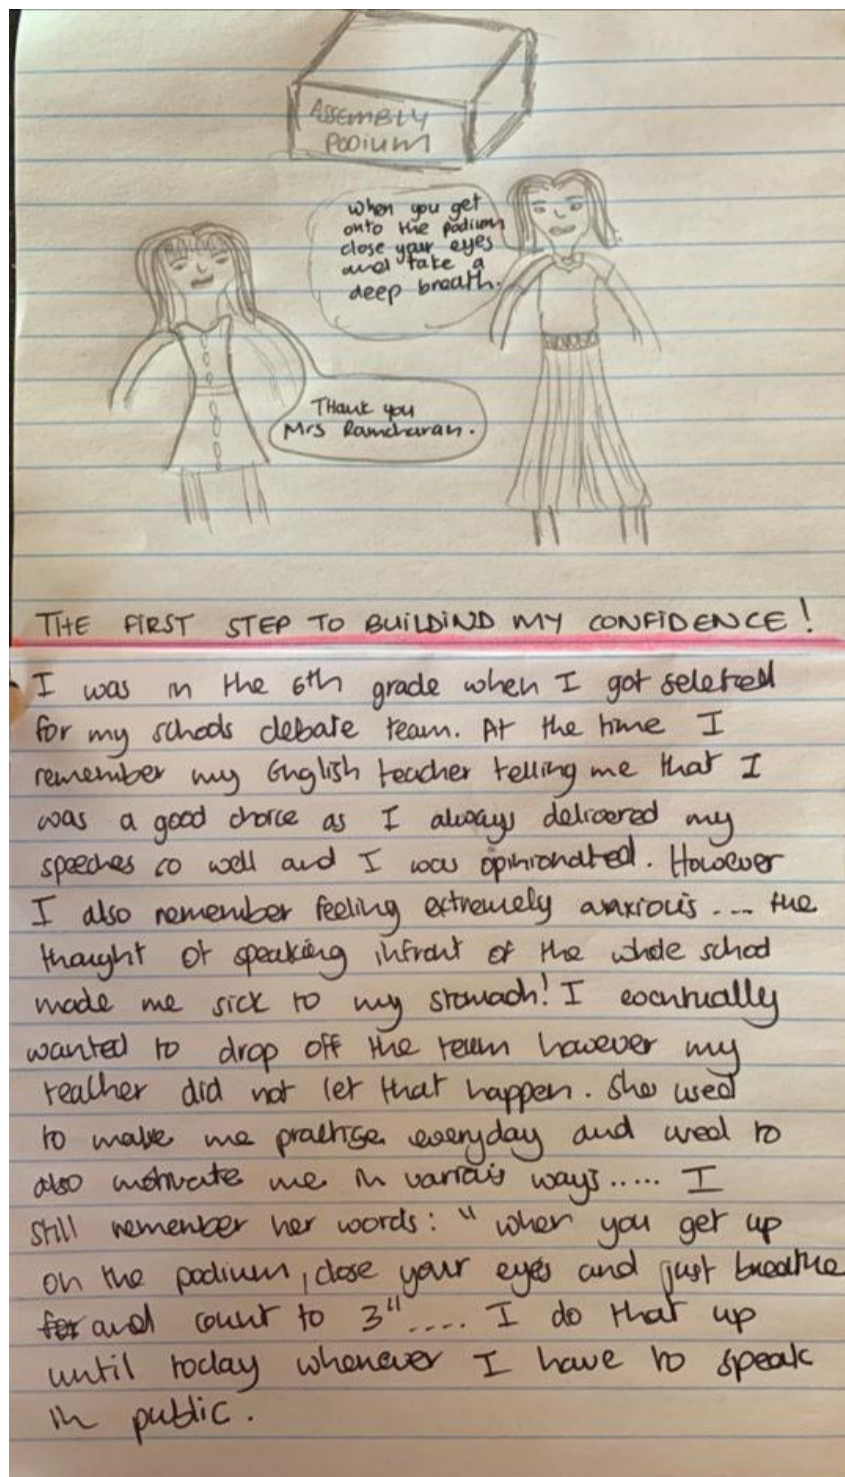 ASSEMBLY
PODIUM
When you get
onto the podium
close your eyes
and take a
deep breath.
THank you
Mrs Ramcharan.
THE FIRST STEP TO BUILDIND MY CONFIDENCE!
I was in the 6th grade when I got seleted
for my schools debate team. At the time I
remember my English teacher telling me that I
was a good choice as I always delivered my
speeches so well and I was opinionated. However
I also remember feeling extremely anxious... the
thought of speaking infront of the whole school
made me sick to my stomach! I eventually
wanted to drop off the team however my
teacher did not let that happen. She used
to make me practise everyday and used to
also motivate me in various ways..... I
still remember her words: "when you get up
on the podium, close your eyes and just breathe
for and count to 3".... I do that up
until today whenever I have to speak
in public.